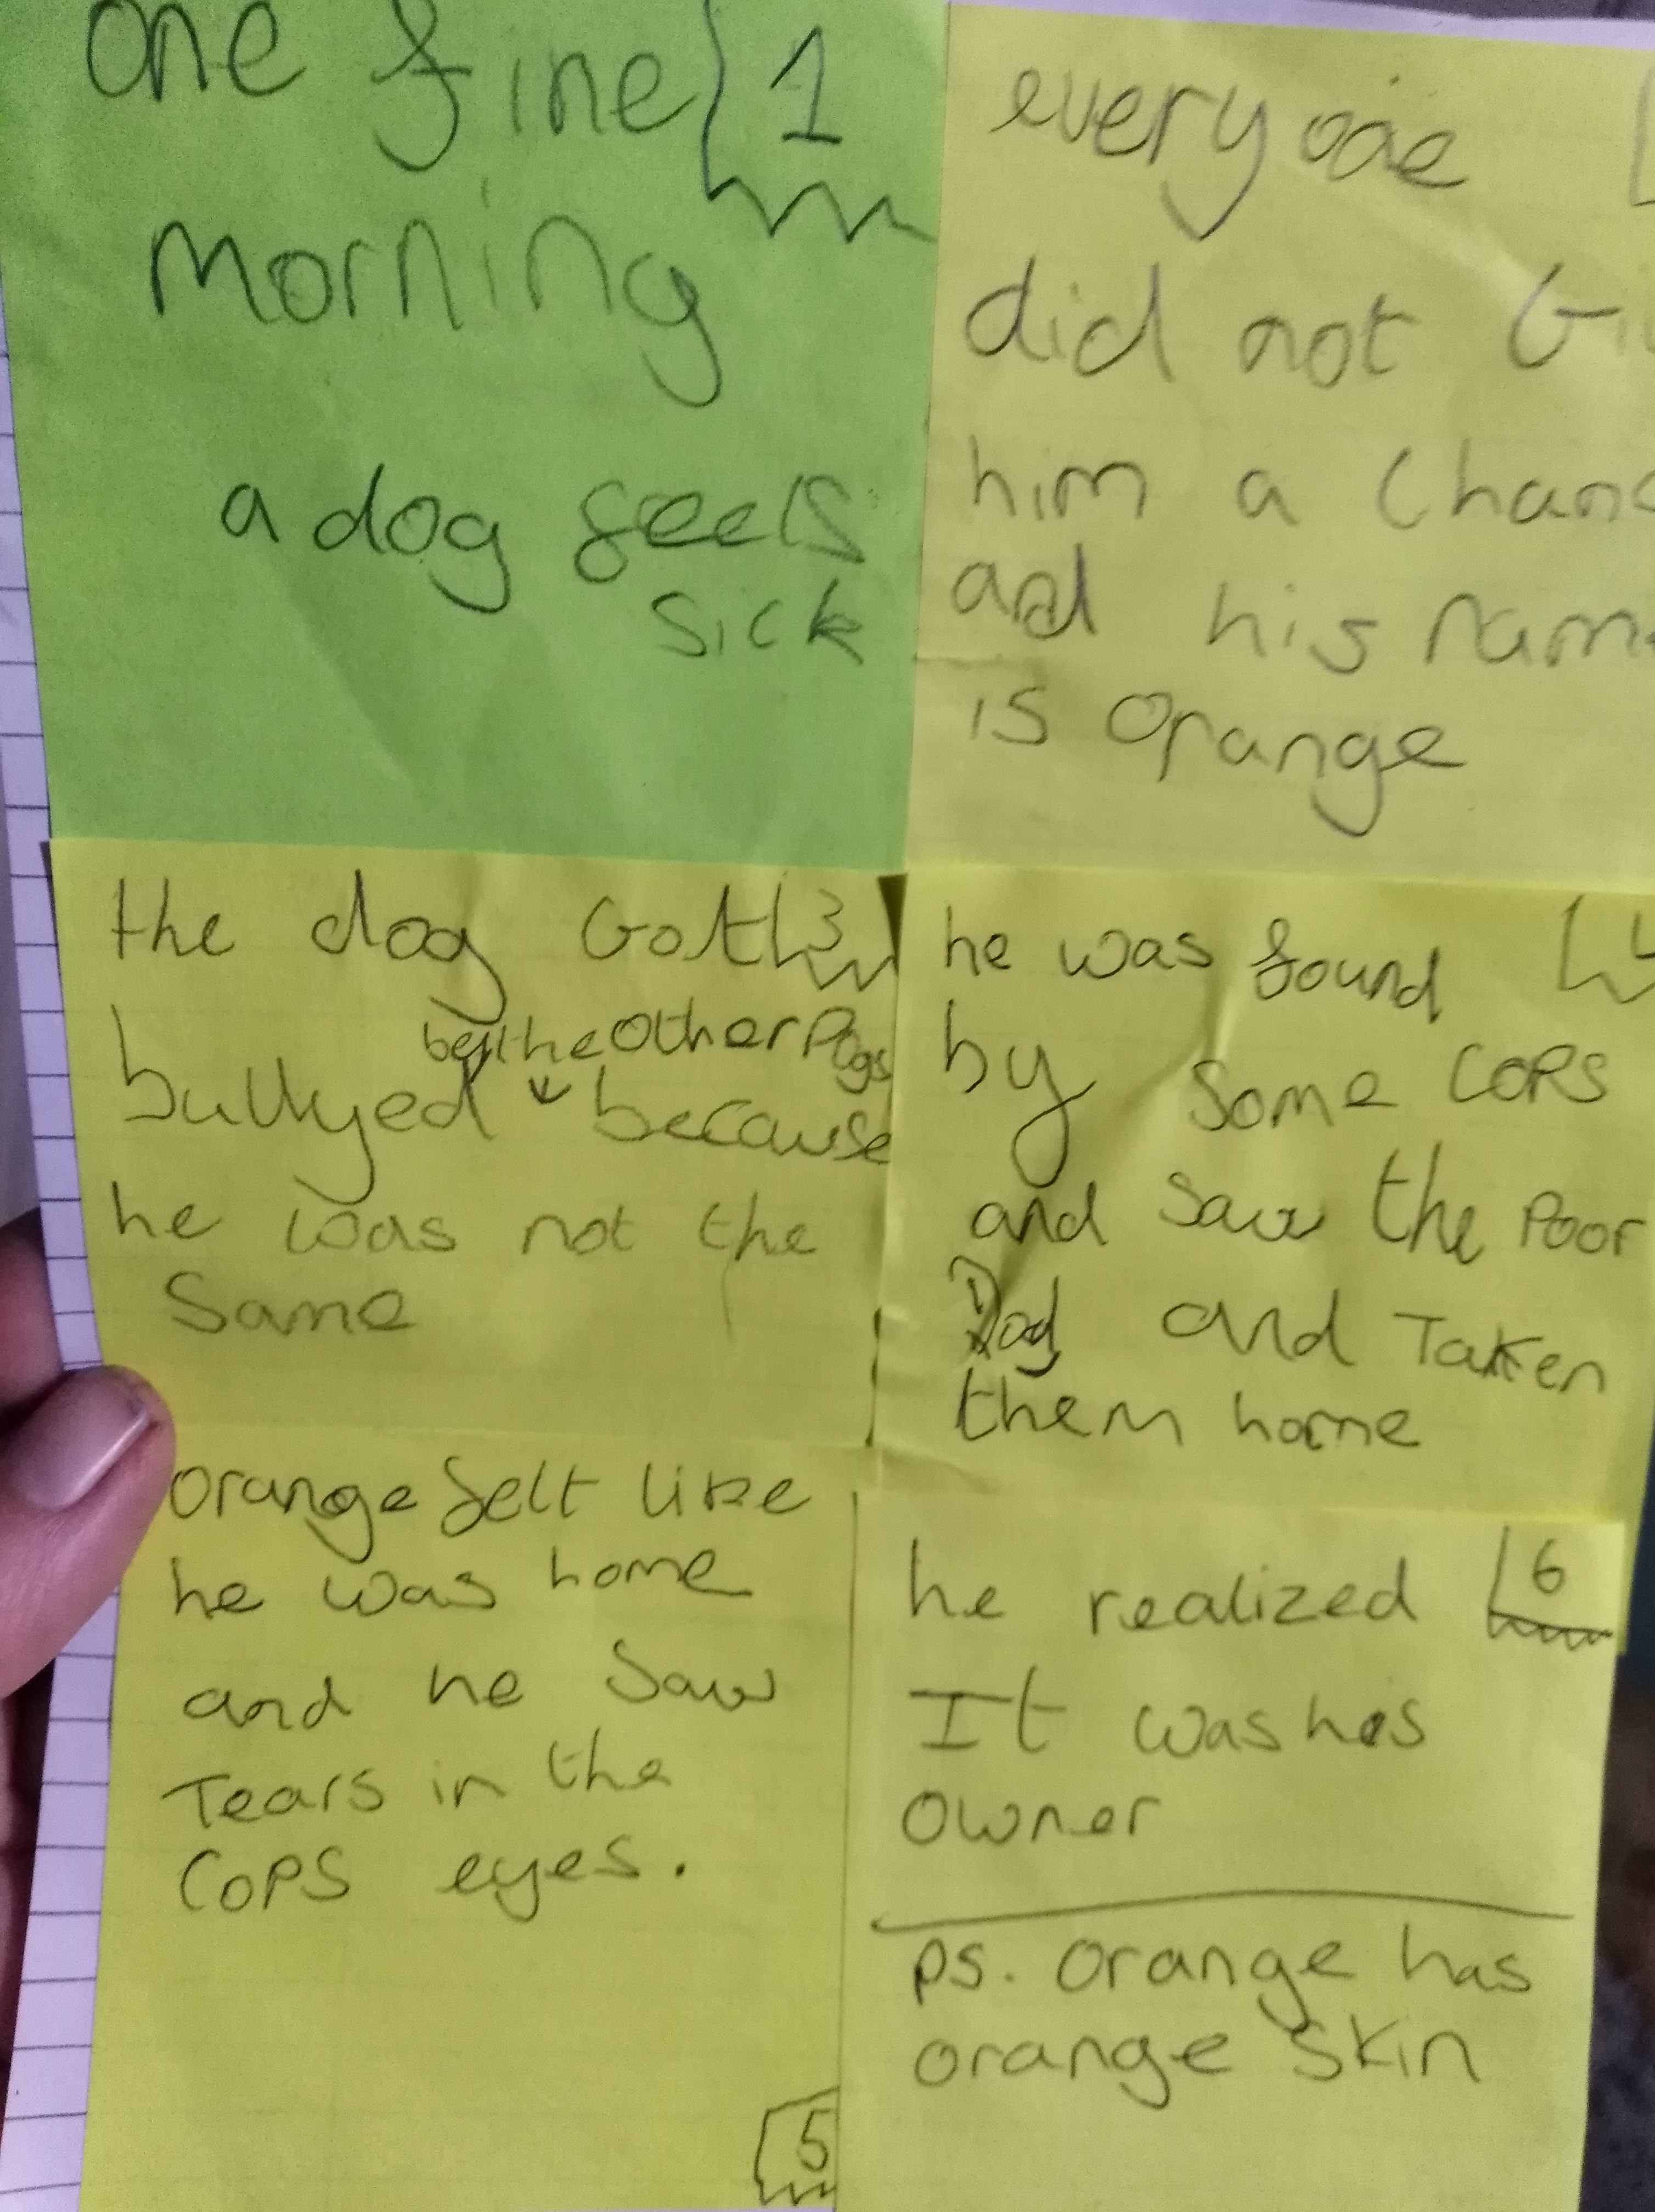 one fine 1
morning
a dog feels
sick
everyone
did not Gi
him a Chanc
and his name
is Orange
the dog Got 3
by the other Dogs
bullyed because
he was not the
Same
he was found
by Some COPS
and Saw the Poor
Dog and Taken
them home
Orange felt like
he was home
and he Saw
Tears in the
COPS eyes.
5
he realized 6
It was his
owner
ps. orange has
orange skin